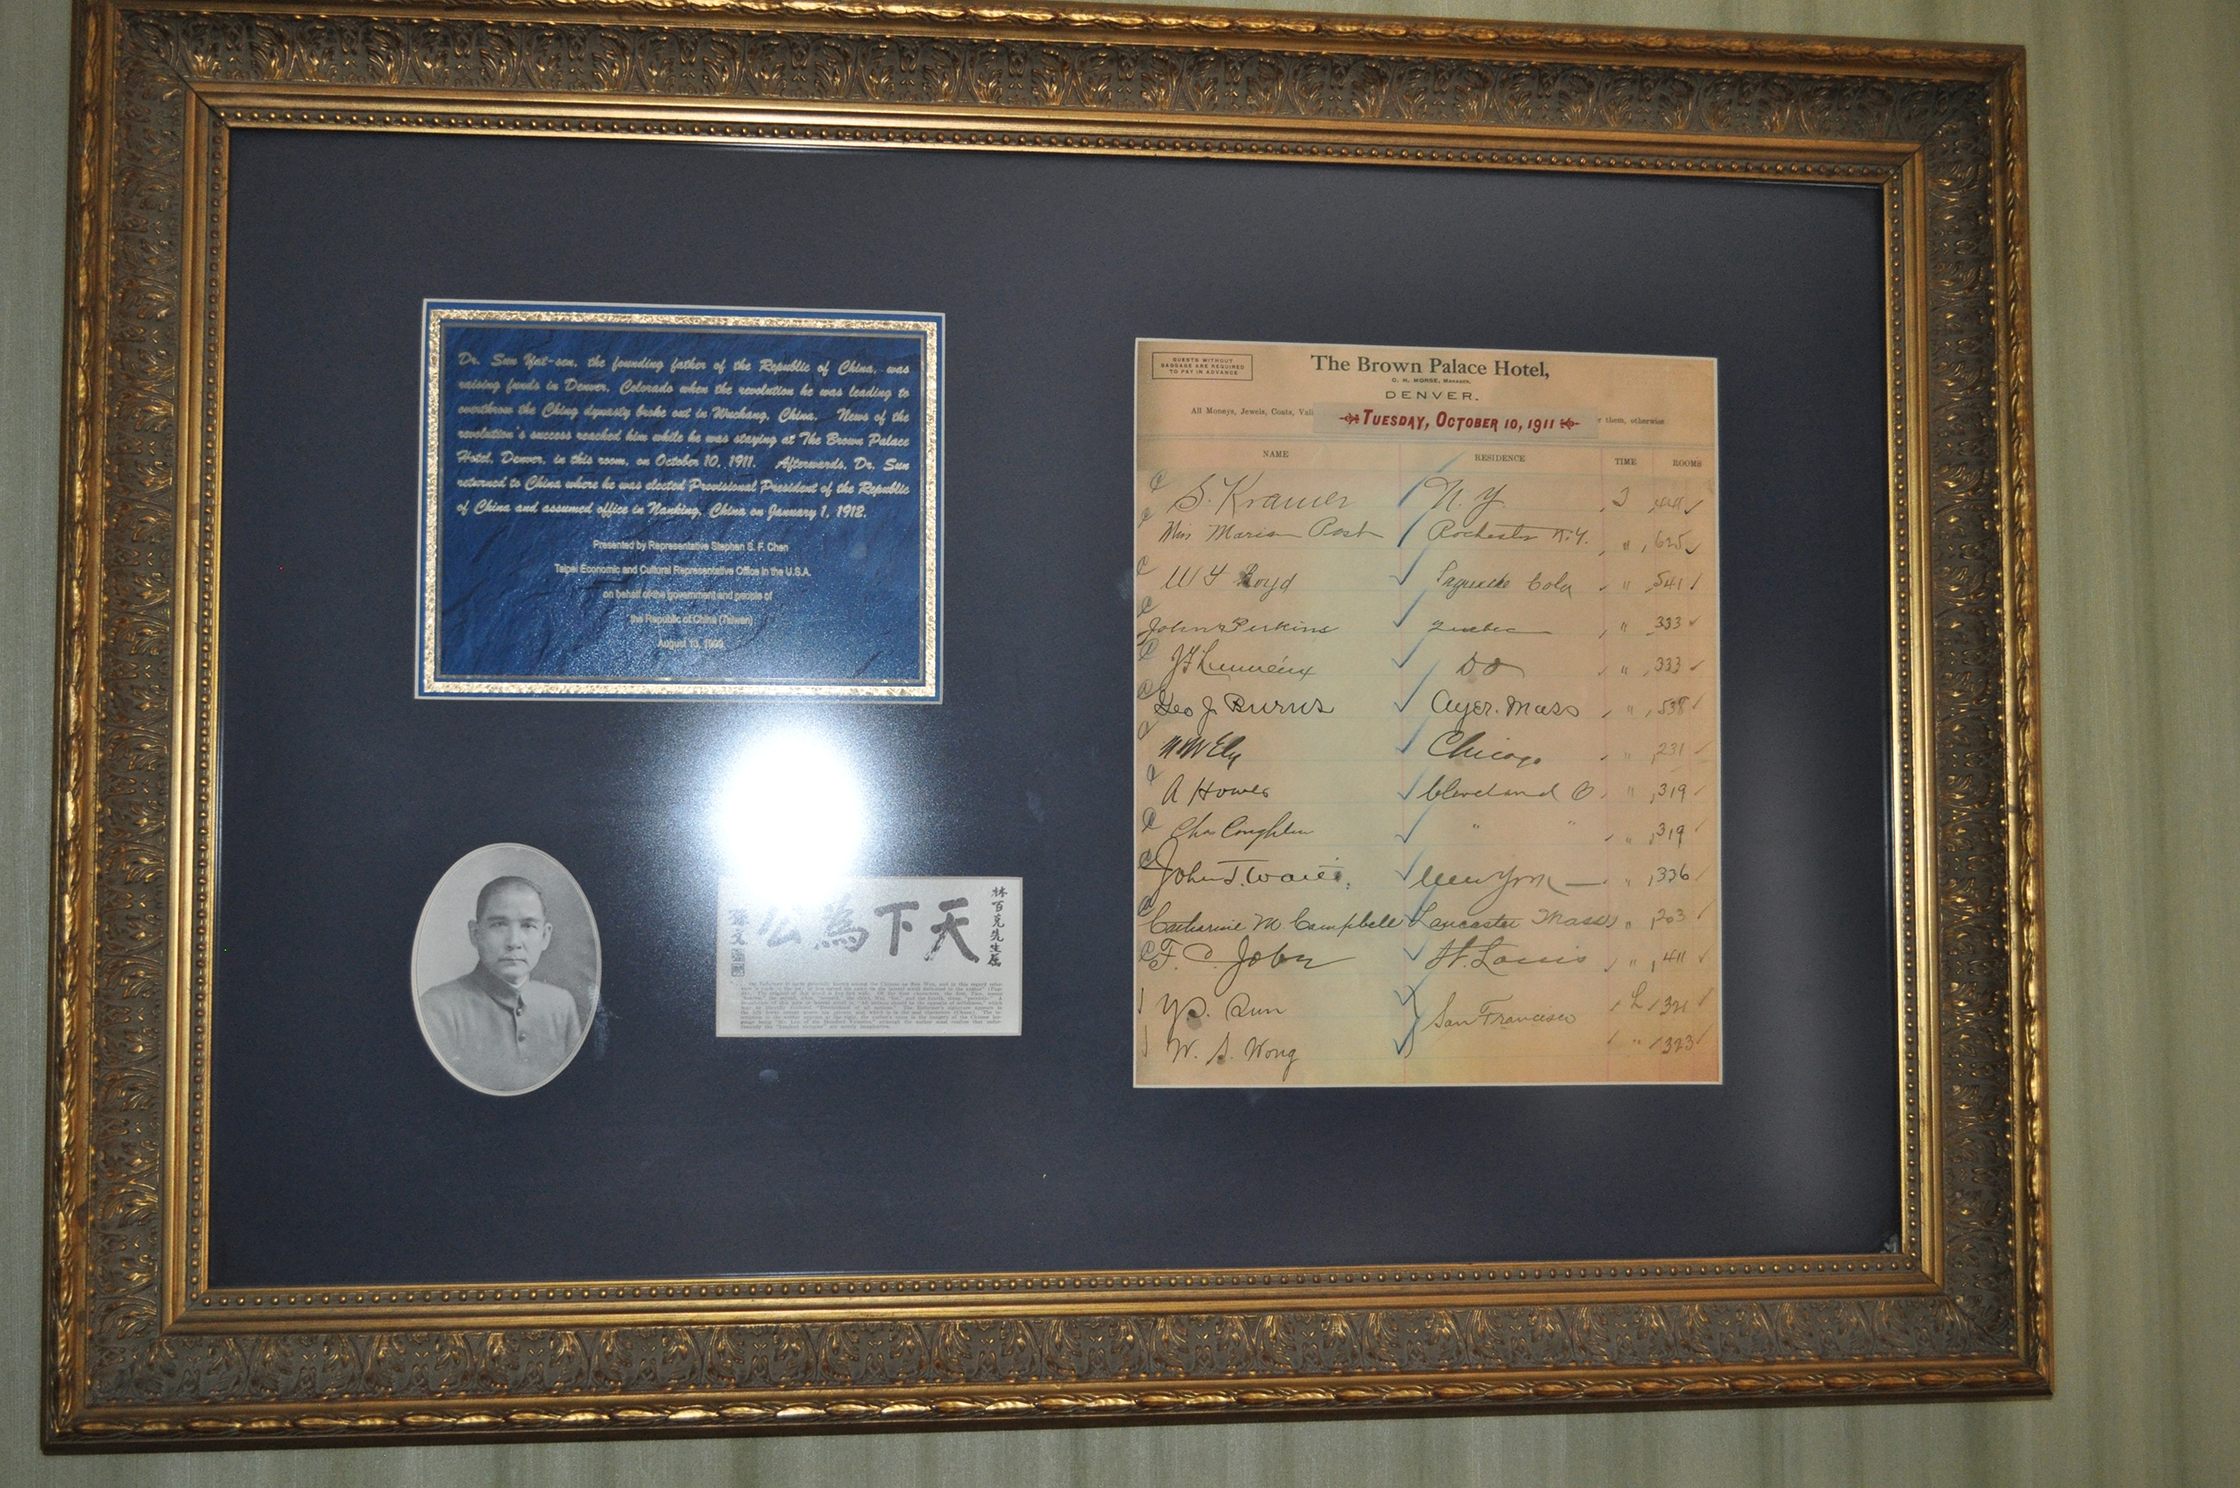 Dr. Sun Yat-sen, the founding father of the Republic of China, was
raising funds in Denver, Colorado when the revolution he was leading to
overthrow the Ching dynasty broke out in Wuchang, China. News of the
revolution's success reached him while he was staying at The Brown Palace
Hotel, Denver, in this room, on October 10, 1911. Afterwards, Dr. Sun
returned to China where he was elected Provisional President of the Republic
of China and assumed office in Nanking, China on January 1, 1912.
Presented by Representative Stephen S. F. Chen
Taipei Economic and Cultural Representative Office in the U.S.A.
on behalf of the government and people of
the Republic of China (Taiwan)
August 13, 1999
林百克先生屬
天下為公
孫文
GUESTS WITHOUT
BAGGAGE ARE REQUIRED
TO PAY IN ADVANCE
The Brown Palace Hotel,
C. H. MORSE, MANAGER.
DENVER.
All Moneys, Jewels, Coats, Vali r them, otherwise
TUESDAY, OCTOBER 10, 1911
NAME RESIDENCE TIME ROOMS
S. Kramer N. Y. 441
Miss Marian Post Rochester N.Y. " 625
W Boyd Colo " 541
John Perkins Quebec " 333
Do " 333
Geo J. Burns Ayer. Mass " 538
Ely Chicago " 231
A Howes Cleveland O. " 319
Chas Coughlin " " " 319
John J. New York " 336
Catharine M Campbell Lancaster Mass " 203
F. C. St. Louis " 411
Y. S. Sun San Francisco L 321
W. S. Wong " 323